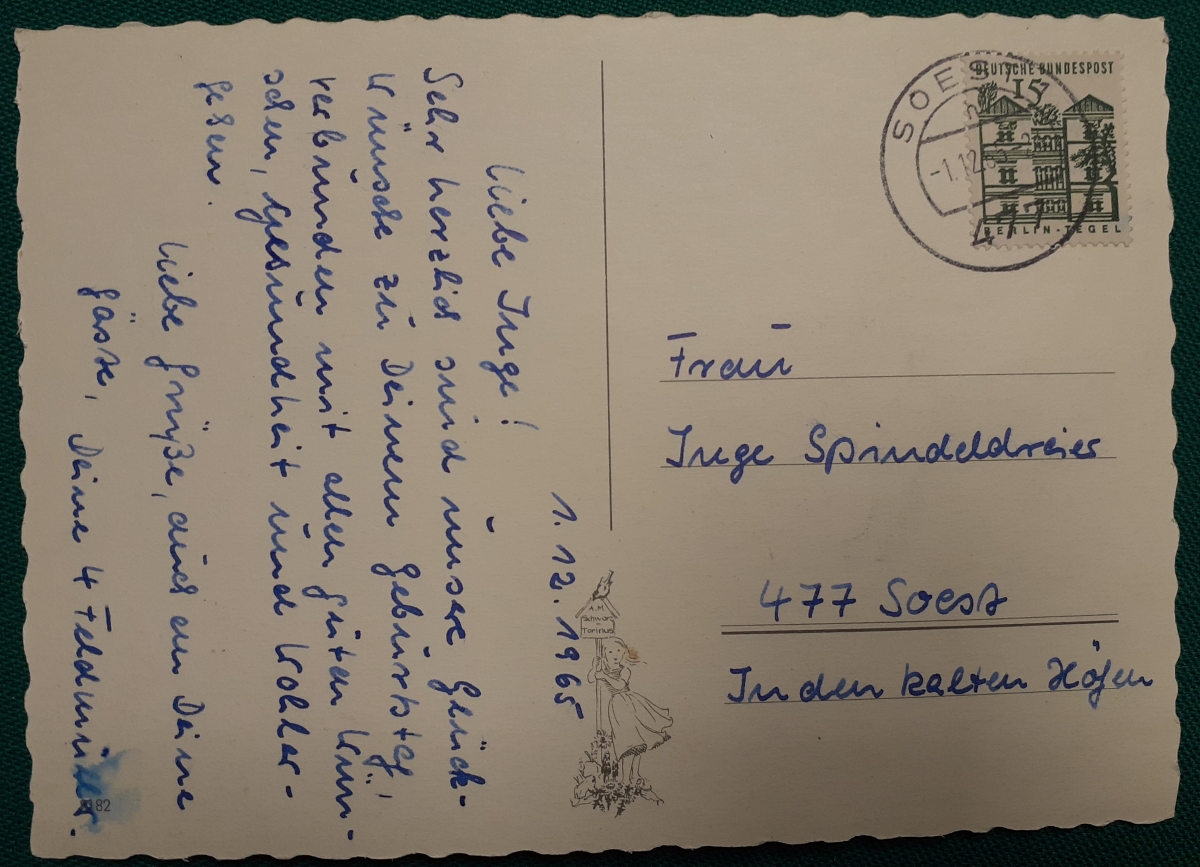 1. 12. 1965
Liebe Inge!
Sehr herzlich sind unsere Glück-
wünsche zu Deinem Geburtstag,
verbunden mit allen guten Wün-
schen, Gesundheit und Wohler-
gehen.
Liebe Grüße, auch an Deine
Gäste, Deine 4 Feldmüller.
182
Schwarz
Torinus
DEUTSCHE BUNDESPOST
15
BERLIN-TEGEL
SOEST
-1.12.65
477
Frau
Inge Spindeldreier
477 Soest
In den kalten Höfen